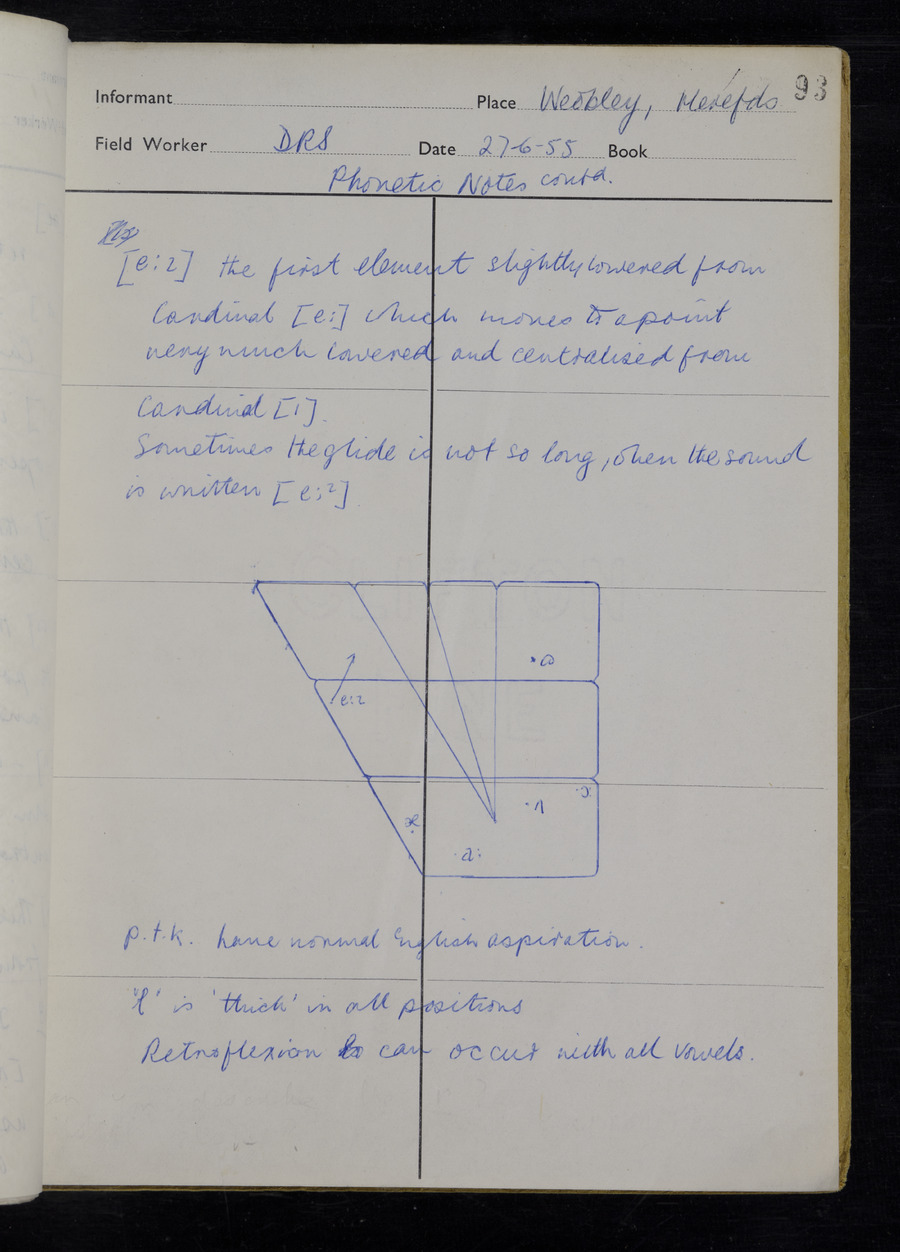 93
Informant Place Weobley, Herefds
Field Worker DRS Date 27-6-55 Book
Phonetic Notes contd.
[e:ɪ] the first element slightly lowered from
Cardinal [e:] which moves to a point
very much lowered and centralised from
Cardinal [i].
Sometimes the glide is not so long, when the sound
is written [e:ᶦ]
ɷ
e:ɪ
ɔ:
ʌ
æ
a:
p.t.k. have normal English aspiration.
'l' is 'thick' in all positions
Retroflexion can occur with all vowels.